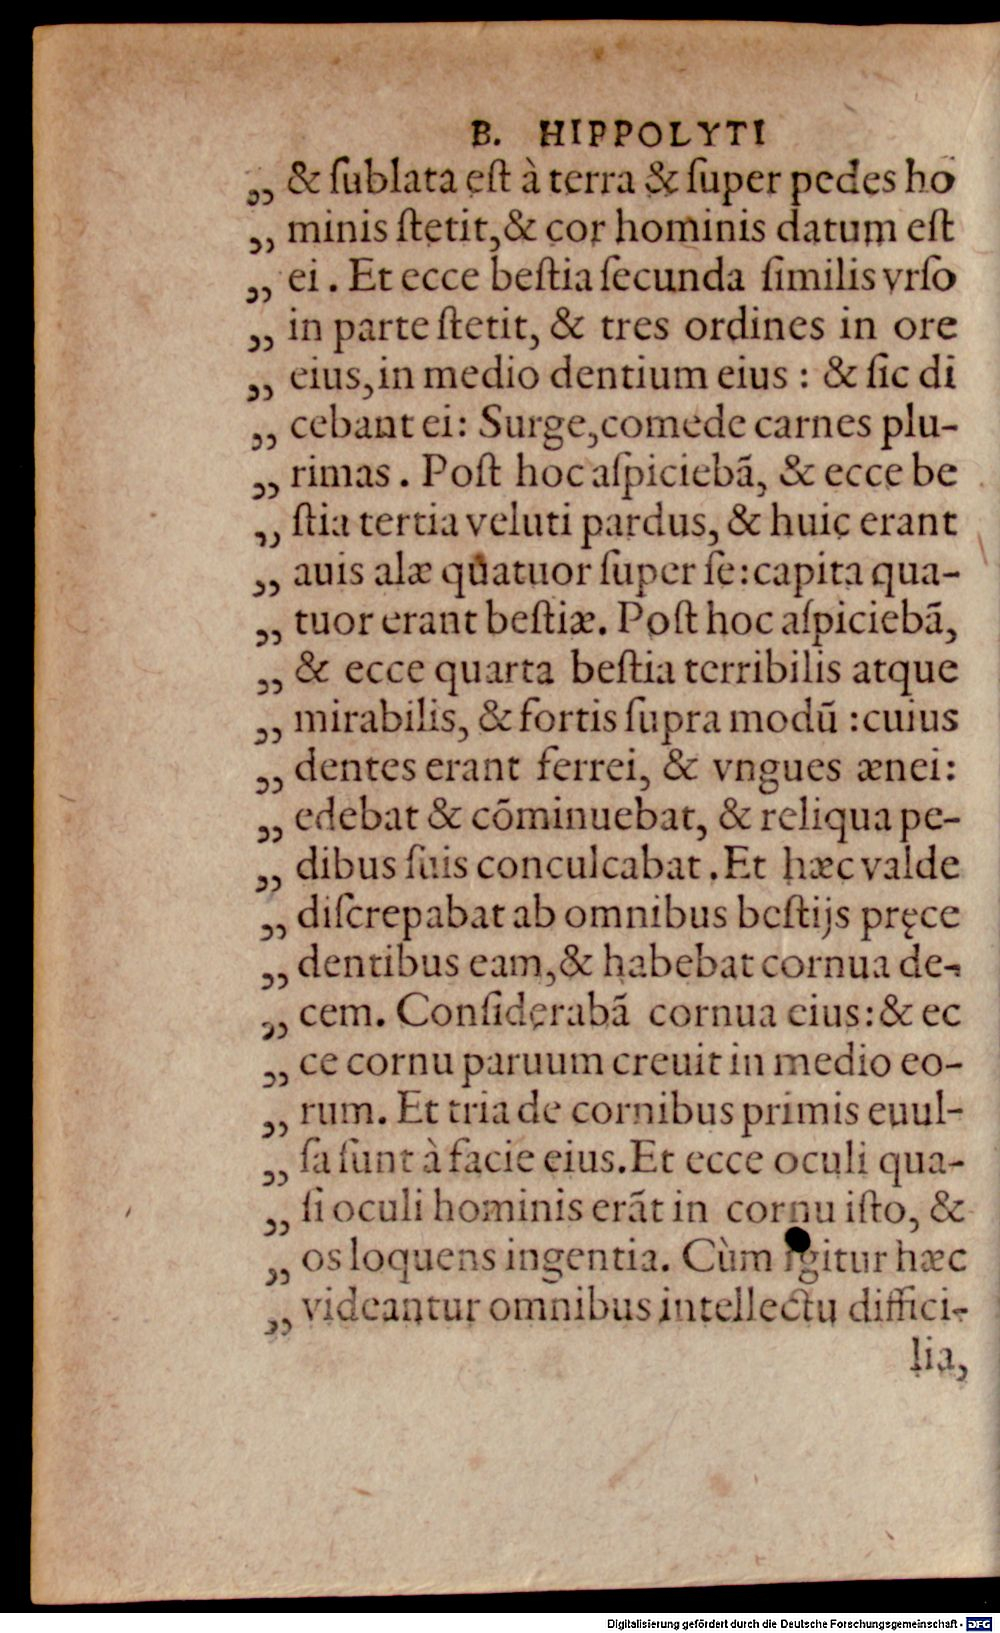 B. HIPPOLYTI
„ & ſublata eſt à terra & ſuper pedes ho
„ minis ſtetit,& cor hominis datum eſt
„ ei . Et ecce beſtia ſecunda ſimilis vrſo
„ in parte ſtetit, & tres ordines in ore
„ eius,in medio dentium eius : & ſic di
„ cebant ei: Surge,comede carnes plu-
„ rimas . Poſt hoc aſpiciebã, & ecce be
„ ſtia tertia veluti pardus, & huic erant
„ auis alæ quatuor ſuper ſe:capita qua-
„ tuor erant beſtiæ. Poſt hoc aſpiciebã,
„ & ecce quarta beſtia terribilis atque
„ mirabilis, & fortis ſupra modũ :cuius
„ dentes erant ferrei, & vngues ænei:
„ edebat & cõminuebat, & reliqua pe-
„ dibus ſuis conculcabat .Et hæc valde
„ diſcrepabat ab omnibus beſtijs pręce
„ dentibus eam,& habebat cornua de-
„ cem. Conſiderabã cornua eius:& ec
„ ce cornu paruum creuit in medio eo-
„ rum. Et tria de cornibus primis euul-
„ ſa ſunt à facie eius.Et ecce oculi qua-
„ ſi oculi hominis erãt in cornu iſto, &
„ os loquens ingentia. Cùm igitur hæc
„ videantur omnibus intellectu diffici-
lia,
Digitalisierung gefördert durch die Deutsche Forschungsgemeinschaft - DFG